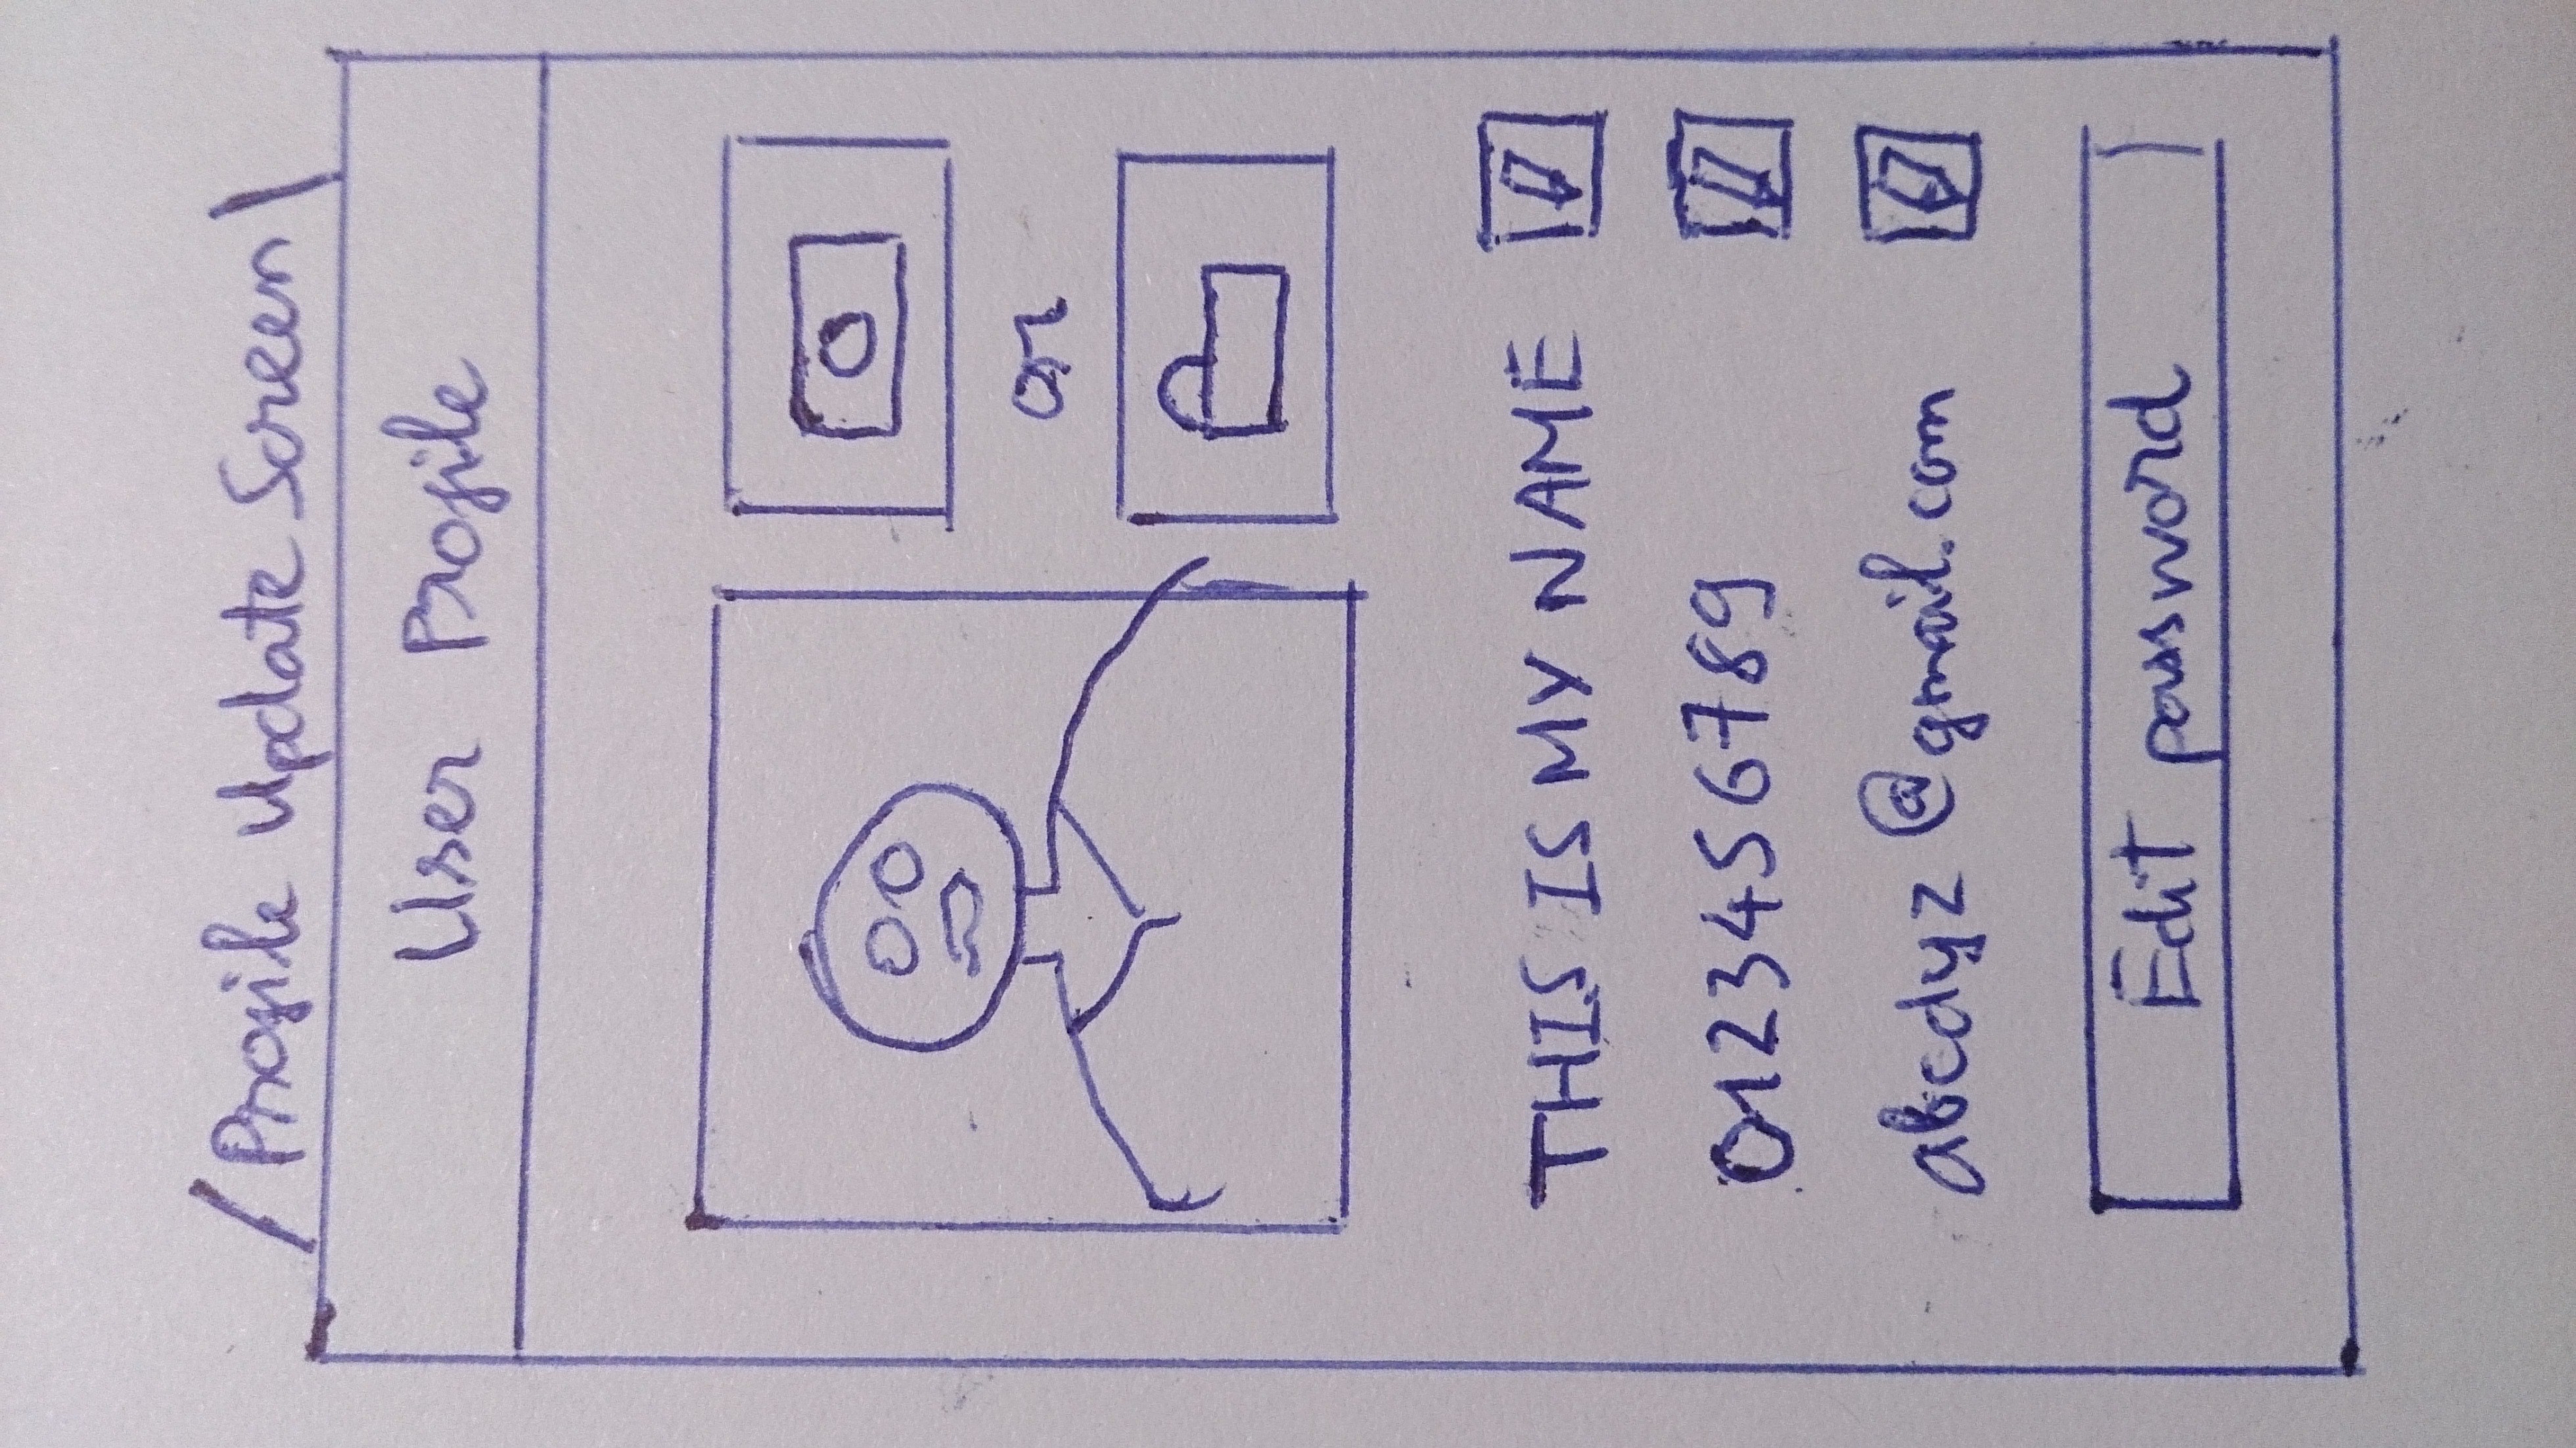 /Profile Update Screen\
User Profile
or
THIS IS MY NAME
0123456789
abcdyz@gmail.com
Edit password